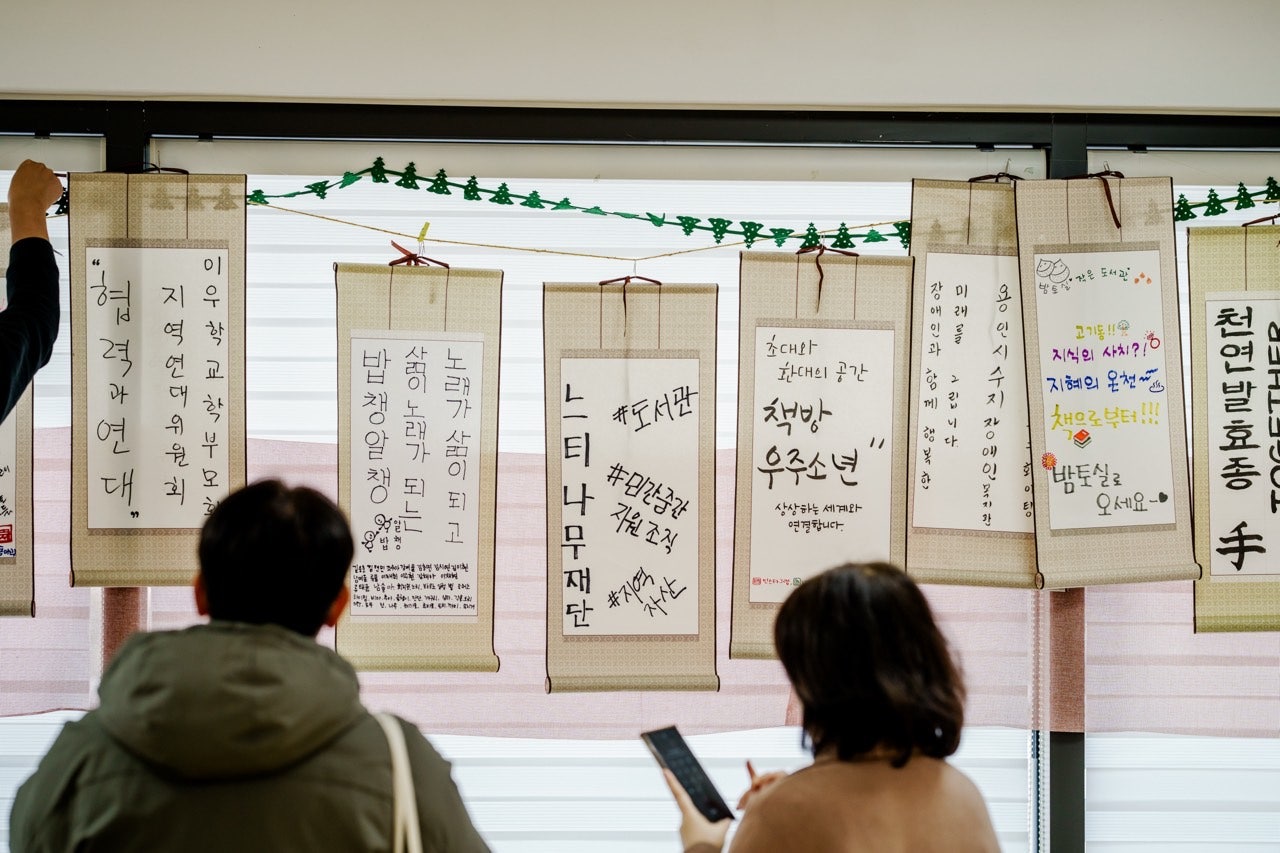 이우학교학부모회
지역연대위원회
“협력과연대”
노래가 삶이 되고
삶이 노래가 되는
밥챙알챙
#도서관
느티나무재단
#민간중간
지원 조직
#지역
자산
초대와
환대의 공간
책방
우주소년”
상상하는 세계와
연결합니다.
용인시수지장애인복지관
미래를 그립니다
장애인과 함께 행복한
밤토실 작은 도서관
고기동!!
지식의 사치?!
지혜의 온천~
책으로부터!!!
밤토실로
오세요~
천연발효종 手
TOGETHER